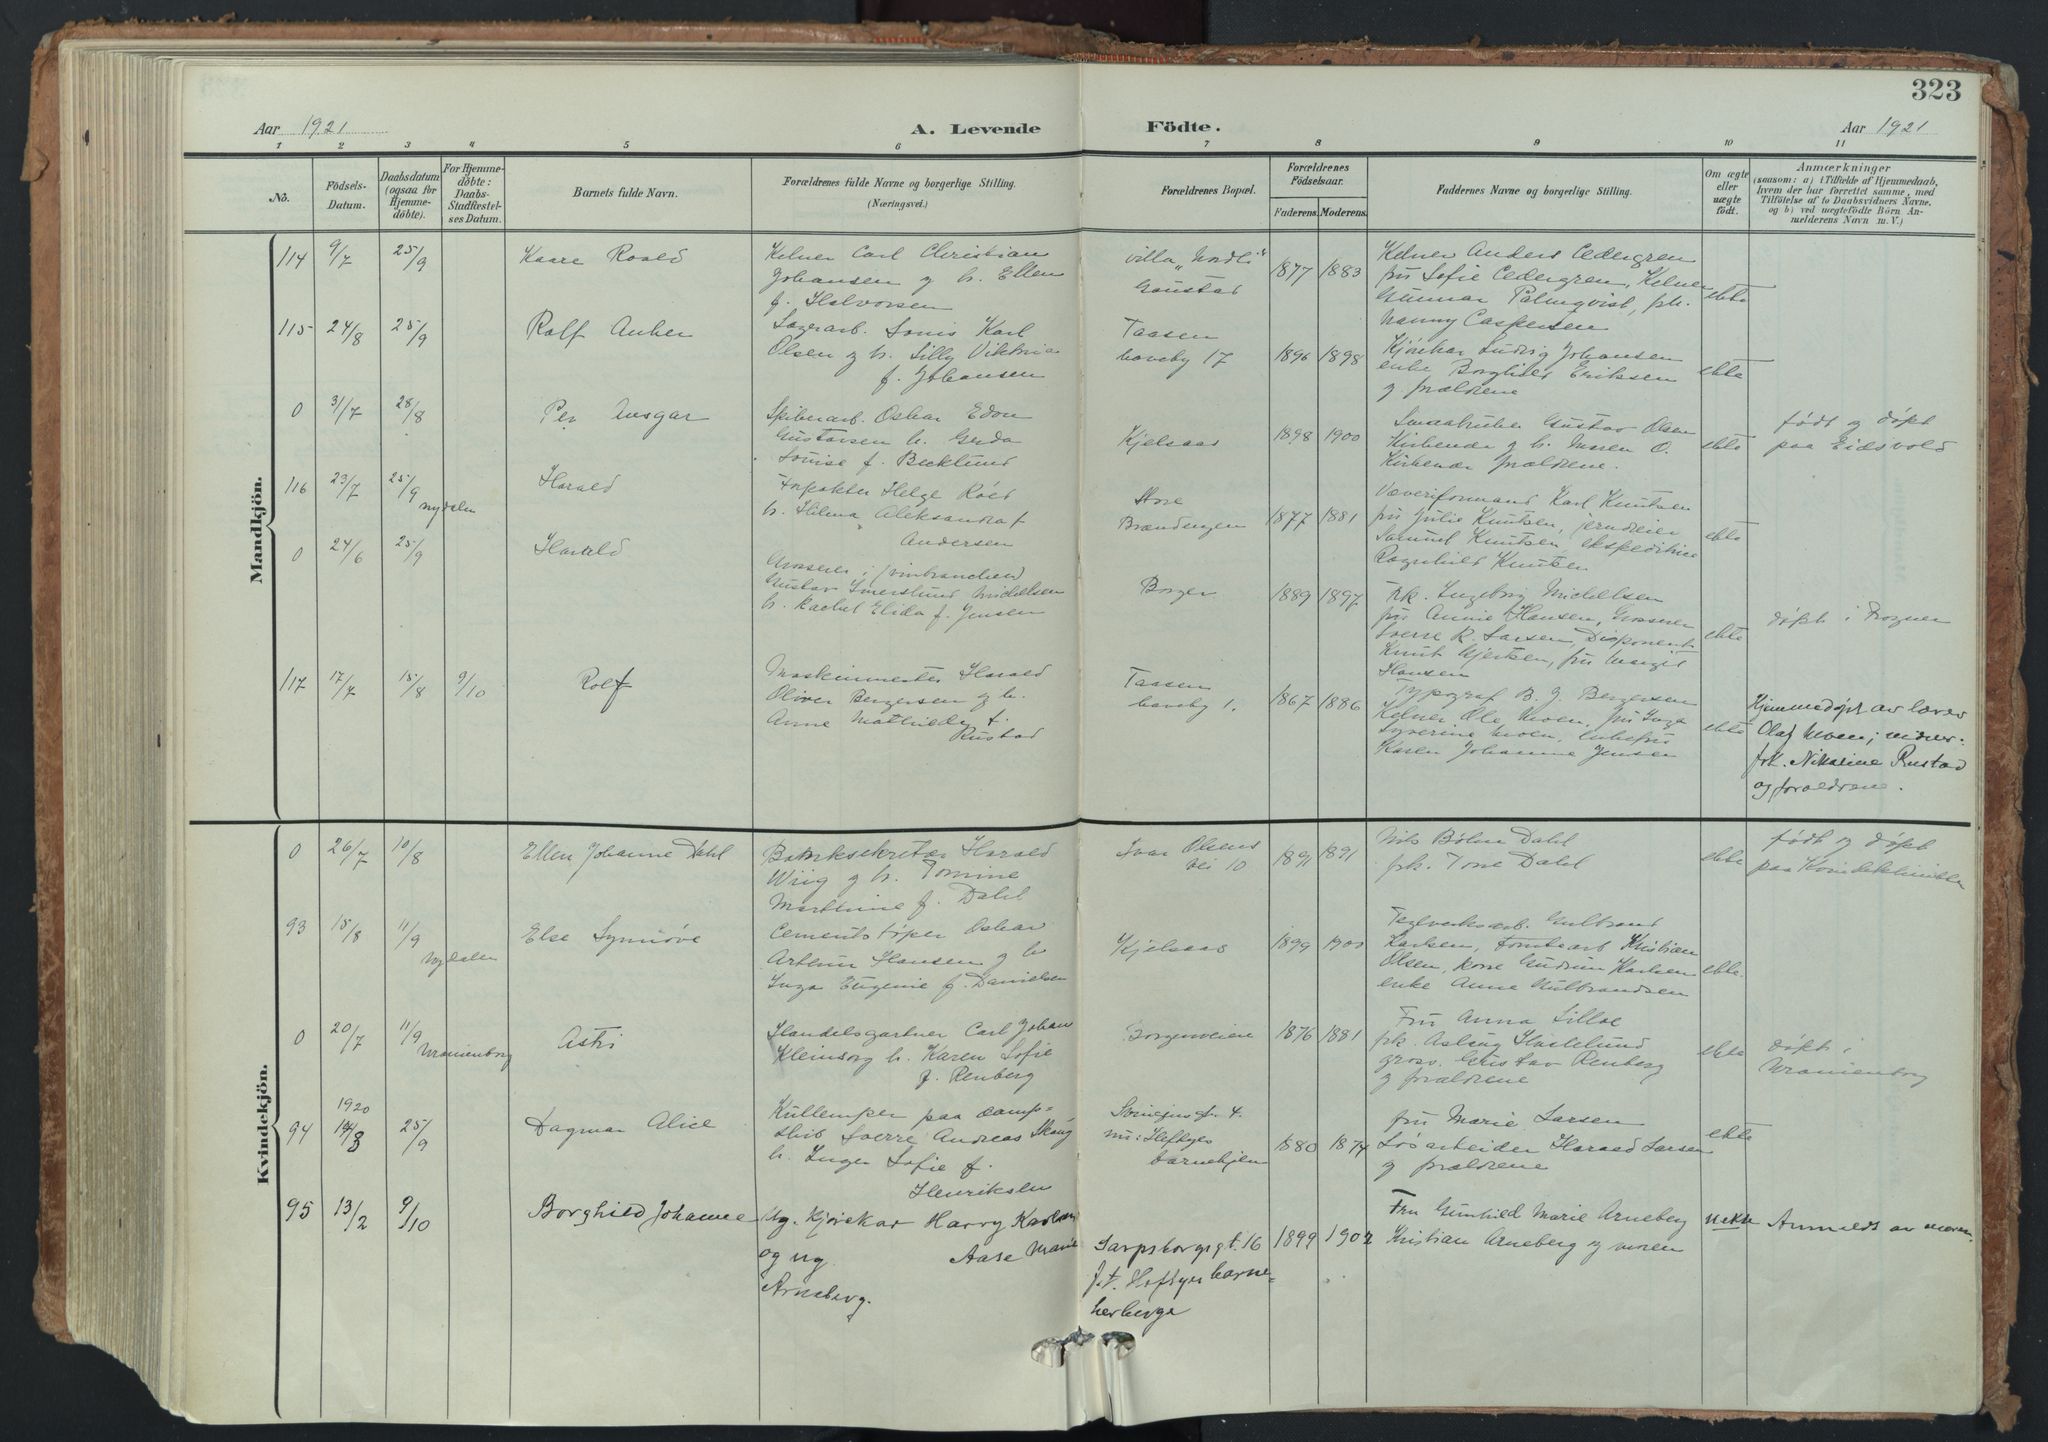 323
Aar 1921
A. Levende Födte.
Aar 1921
1 2 3 4 5 6 7 8 9 10 11
No.
Födsels-
Datum.
Daabsdatum
(ogsaa for
Hjemme-
döbte).
For Hjemme-
döbte:
Daabs-
Stadfæstel-
ses Datum.
Barnets fulde Navn.
Forældrenes fulde Navne og borgerlige Stilling.
(Næringsvei.)
Forældrenes Bopæl.
Forældrenes
Födselsaar.
Faderens. Moderens.
Faddernes Navne og borgerlige Stilling.
Om ægte
eller
uægte
födt.
Anmærkninger
(saasom: a) i Tilfælde af Hjemmedaab,
hvem der har forrettet samme, med
Tilföielse af to Daabsvidners Navne.
og b) ved uægtefödte Börn An-
melderens Navn m. V.)
Mandkjön.
114 9/7 25/9 Kaare Roald
Kelner Carl Christian
Johansen g h. Ellen
f. Halvorsen
villa "Nordli"
Gaustad
1877 1883
Kelner Anders Cedergren
fru Sofie Cedergren, Kelner
Gunnar Palmqvist, frk.
Nanny Caspersen
ekte
115 24/8 25/9 Rolf
Karl
Olsen g h. Lilly Viktoria
f. Johansen
Taasen
haveby 17
1896 1898
Kjørekar Ludvig Johansen
enke Borghild Eriksen
g forældrene
ekte
0 31/7 28/8 Per Ansgar
Oskar
Gustavsen h. Gerda
Louise f. Becklund
Kjelsaas
1898 1900
Gustav Olsen
g h. Maren O.
forældrene.
ekte
født og døpt
paa Eidsvold
116 23/7 25/9 Nydalen Harald
Helge
h. Hilma Aleksandra f
Andersen
Store
Brændengen
1877 1881
Væveriformand Karl Knutsen
fru Julie Knutsen,
Samuel Knutsen, ekspeditrice
Ragnhild Knutsen
ekte
0 24/6 25/9 Harald
Grosserer i (vinbranchen)
Gustav Smerslund Michelsen
h. Rachel Elida f. Jensen
Borgen
1889 1897
Frk. Ingeborg Michelsen
fru Annie Hansen, Grosserer
Sverre R. Larsen, Disponent
Knut Gjertsen, fru Margit
Hansen
ekte
døpt i Frogner
117 17/7 15/8 9/10 Rolf
Maskinmester Harald
Oliver Bergersen g h.
Anne Mathilde f.
Rustad
Taasen
haveby 1.
1867 1886
Typograf B. J. Bergersen
Kelner Ole Moen, fru Inga
Syverine Moen, enkefru
Karen Johanne Jensen
ekte
Hjemmedøpt av lærer
Olaf Moen; vidner:
frk. Nikoline Rustad
og foreldrene.
Kvindekjön.
0 26/7 10/8 Ellen Johanne Dahl
Banksekretær Harald
Wiig g h. Tomine
Marthine f. Dahl
Ivar Olsens
vei 10
1891 1891
Nils Dahl
frk. Tone Dahl
ekte
født og døpt
paa Kvindeklinikken
93 15/8 11/9 Nydalen Else Synnøve
Cementstøper Oskar
Arthur Hansen g h
Inga Eugenie f. Danielsen
Kjelsaas
1899
Teglverksarb. Gulbrand
Karlsen, Tomtearb Kristian
Olsen, Gudrun Karlsen
enke Anne Gulbrandsen
ekte.
0 20/7 11/9 Uranienborg Astri
Handelsgartner Carl Johan
Kleinsorg h. Karen Sofie
f. Renberg
Borgenveien
1876 1881
Fru Anna Lilloe
frk. Aslaug Hasselund
gross. Gustav Renberg
g forældrene
ekte
døpt i
Uranienborg
94 1920 25/9 Dagmar Alice
Kullemper paa damp=
skib Sverre Andreas Skaug
h. Inger Sofie f.
Henriksen
4.
nu: Heftyes
barnehjem
1880 1874
fru Marie Larsen
Løsarbeider Harald Larsen
g forældrene
ekte
95 13/2 9/10 Borghild Johanne
Ug. Kjørekar Harry Karlsen
og ug. Aase Marie
Arneberg.
Sarpsborggt. 16
f.t. Heftyes barne=
herberge
1899 1902
Fru Gunhild Marie Arneberg
Kristian Arneberg og moren
uekte
Anmeldt av moren.